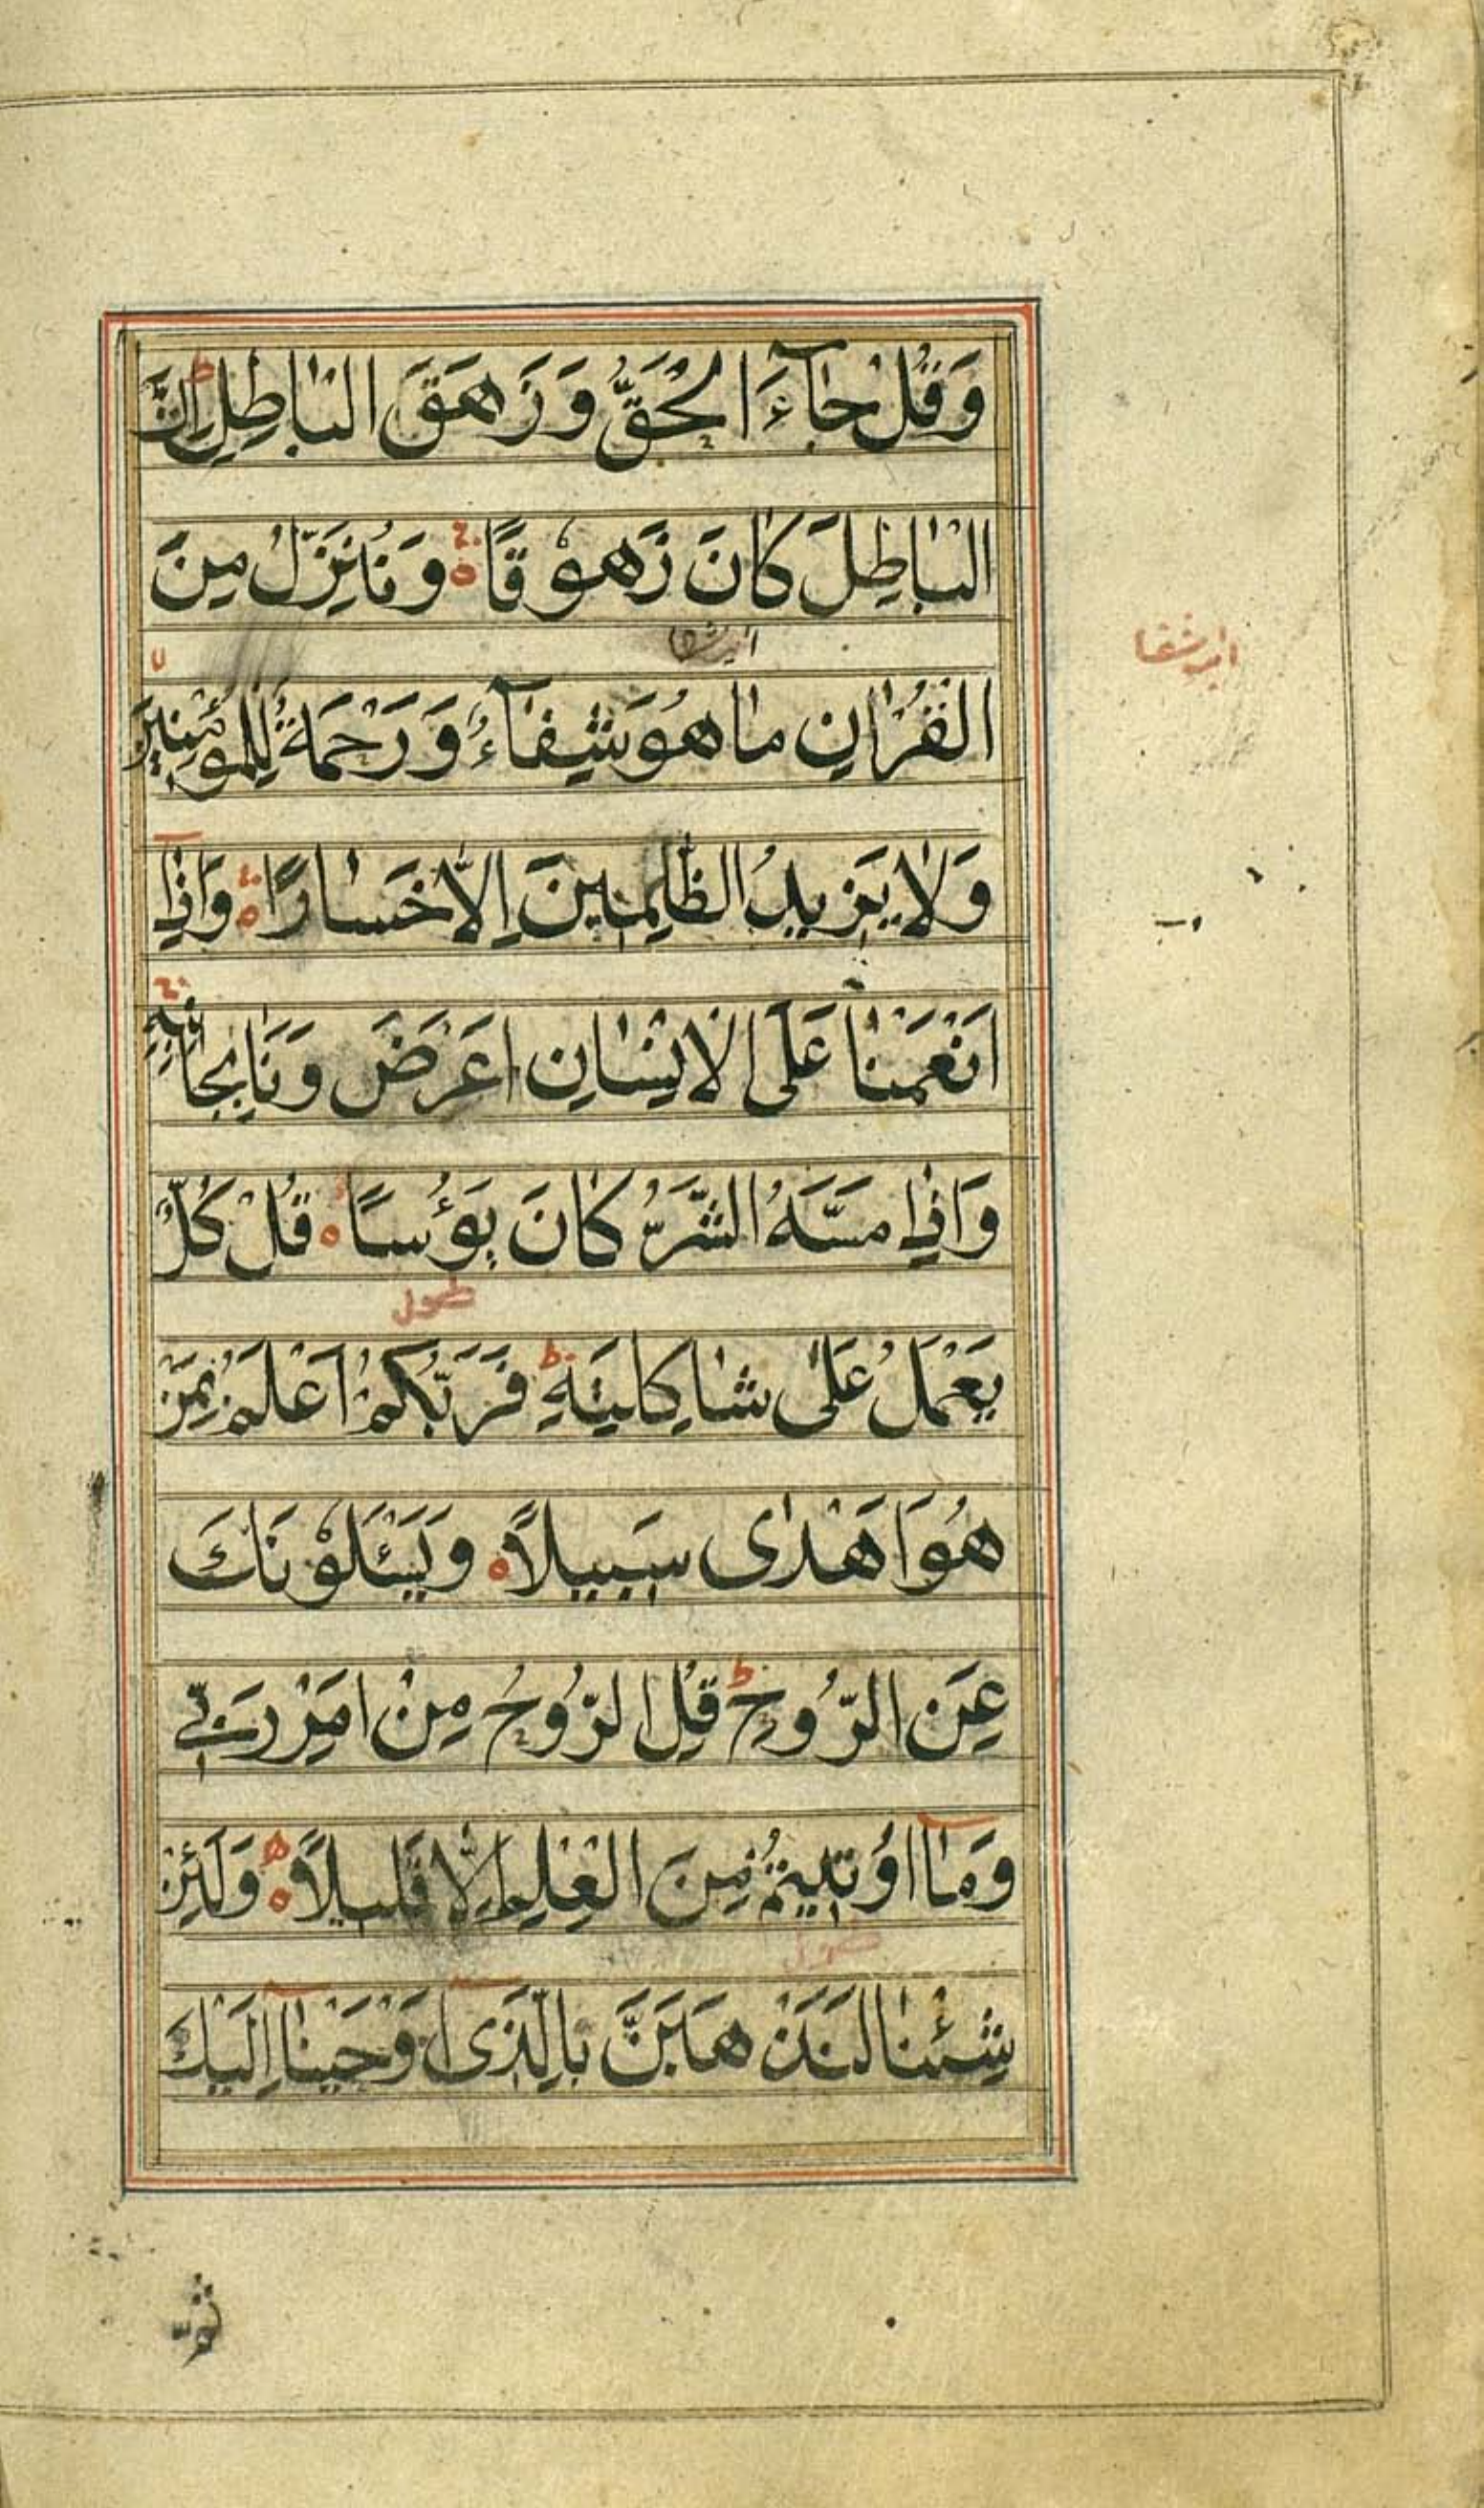 وَقُلْ جَآءَ الْحَقُّ وَزَهَقَ الْبَاطِلُ ط اِنَّ
الْبَاطِلَ كَانَ زَهُوْقًا ه وَنُنَزِّلُ مِنَ
الْقُرْاٰنِ مَا هُوَ شِفَآءٌ وَّرَحْمَةٌ لِّلْمُؤْمِنِيْنَ لا
وَلَا يَزِيْدُ الظّٰلِمِيْنَ اِلَّا خَسَارًا ه وَاِذَآ
اَنْعَمْنَا عَلَى الْاِنْسَانِ اَعْرَضَ وَنَاٰ بِجَانِبِهٖ ج
وَاِذَا مَسَّهُ الشَّرُّ كَانَ يَؤُسًا ه قُلْ كُلٌّ
يَّعْمَلُ عَلٰى شَاكِلَتِهٖ ط فَرَبُّكُمْ اَعْلَمُ بِمَنْ
هُوَ اَهْدٰى سَبِيْلًا ه وَيَسْئَلُوْنَكَ
عَنِ الرُّوْحِ ط قُلِ الرُّوْحُ مِنْ اَمْرِ رَبِّيْ
وَمَآ اُوْتِيْتُمْ مِّنَ الْعِلْمِ اِلَّا قَلِيْلًا ه وَلَئِنْ
شِئْنَا لَنَذْهَبَنَّ بِالَّذِيْٓ اَوْحَيْنَآ اِلَيْكَ